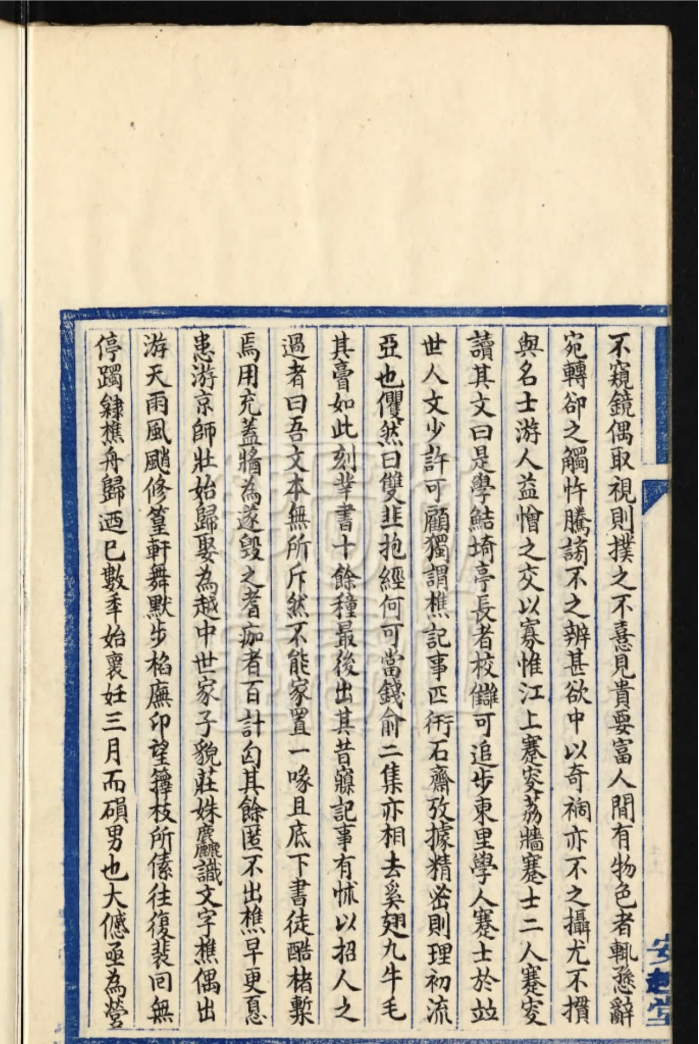 不窺鏡偶取視則撲之不憙見貴耍富人閒有物色者輒愻辭
宛轉卻之觸忤騰謗不之辨甚欲中以奇禍亦不之攝尤不摜
與名士游人益憎之交以寡惟江上蹇叜荔牆蹇士二人蹇叜
讀其文曰是學鮚埼亭長者校讎可追步東里學人蹇士於竝
世人文少許可顧獨謂樵記事匹術石齋攷據精密則理初流
亞也戄然曰雙韭抱經何可當錢俞二集亦相去奚翅九牛毛
其膏如此刻芈書十餘種最後出其昔㝱記事有怵以招人之
過者曰吾文本無所斥然不能家置一喙且底下書徒酷楮槧
焉用充蓋牆為遂毀之耆痂者百計匃其餘匿不出樵早更㥑
患游京師壯始歸娶為越中世家子貌莊姝麤識文字樵偶出
游天雨風颼修篁軒舞默步桰廡卬望籜枝所傃往復裴回無
停躅肄樵舟歸迺已數秊始褢妊三月而磒男也大憾亟為營
安越堂